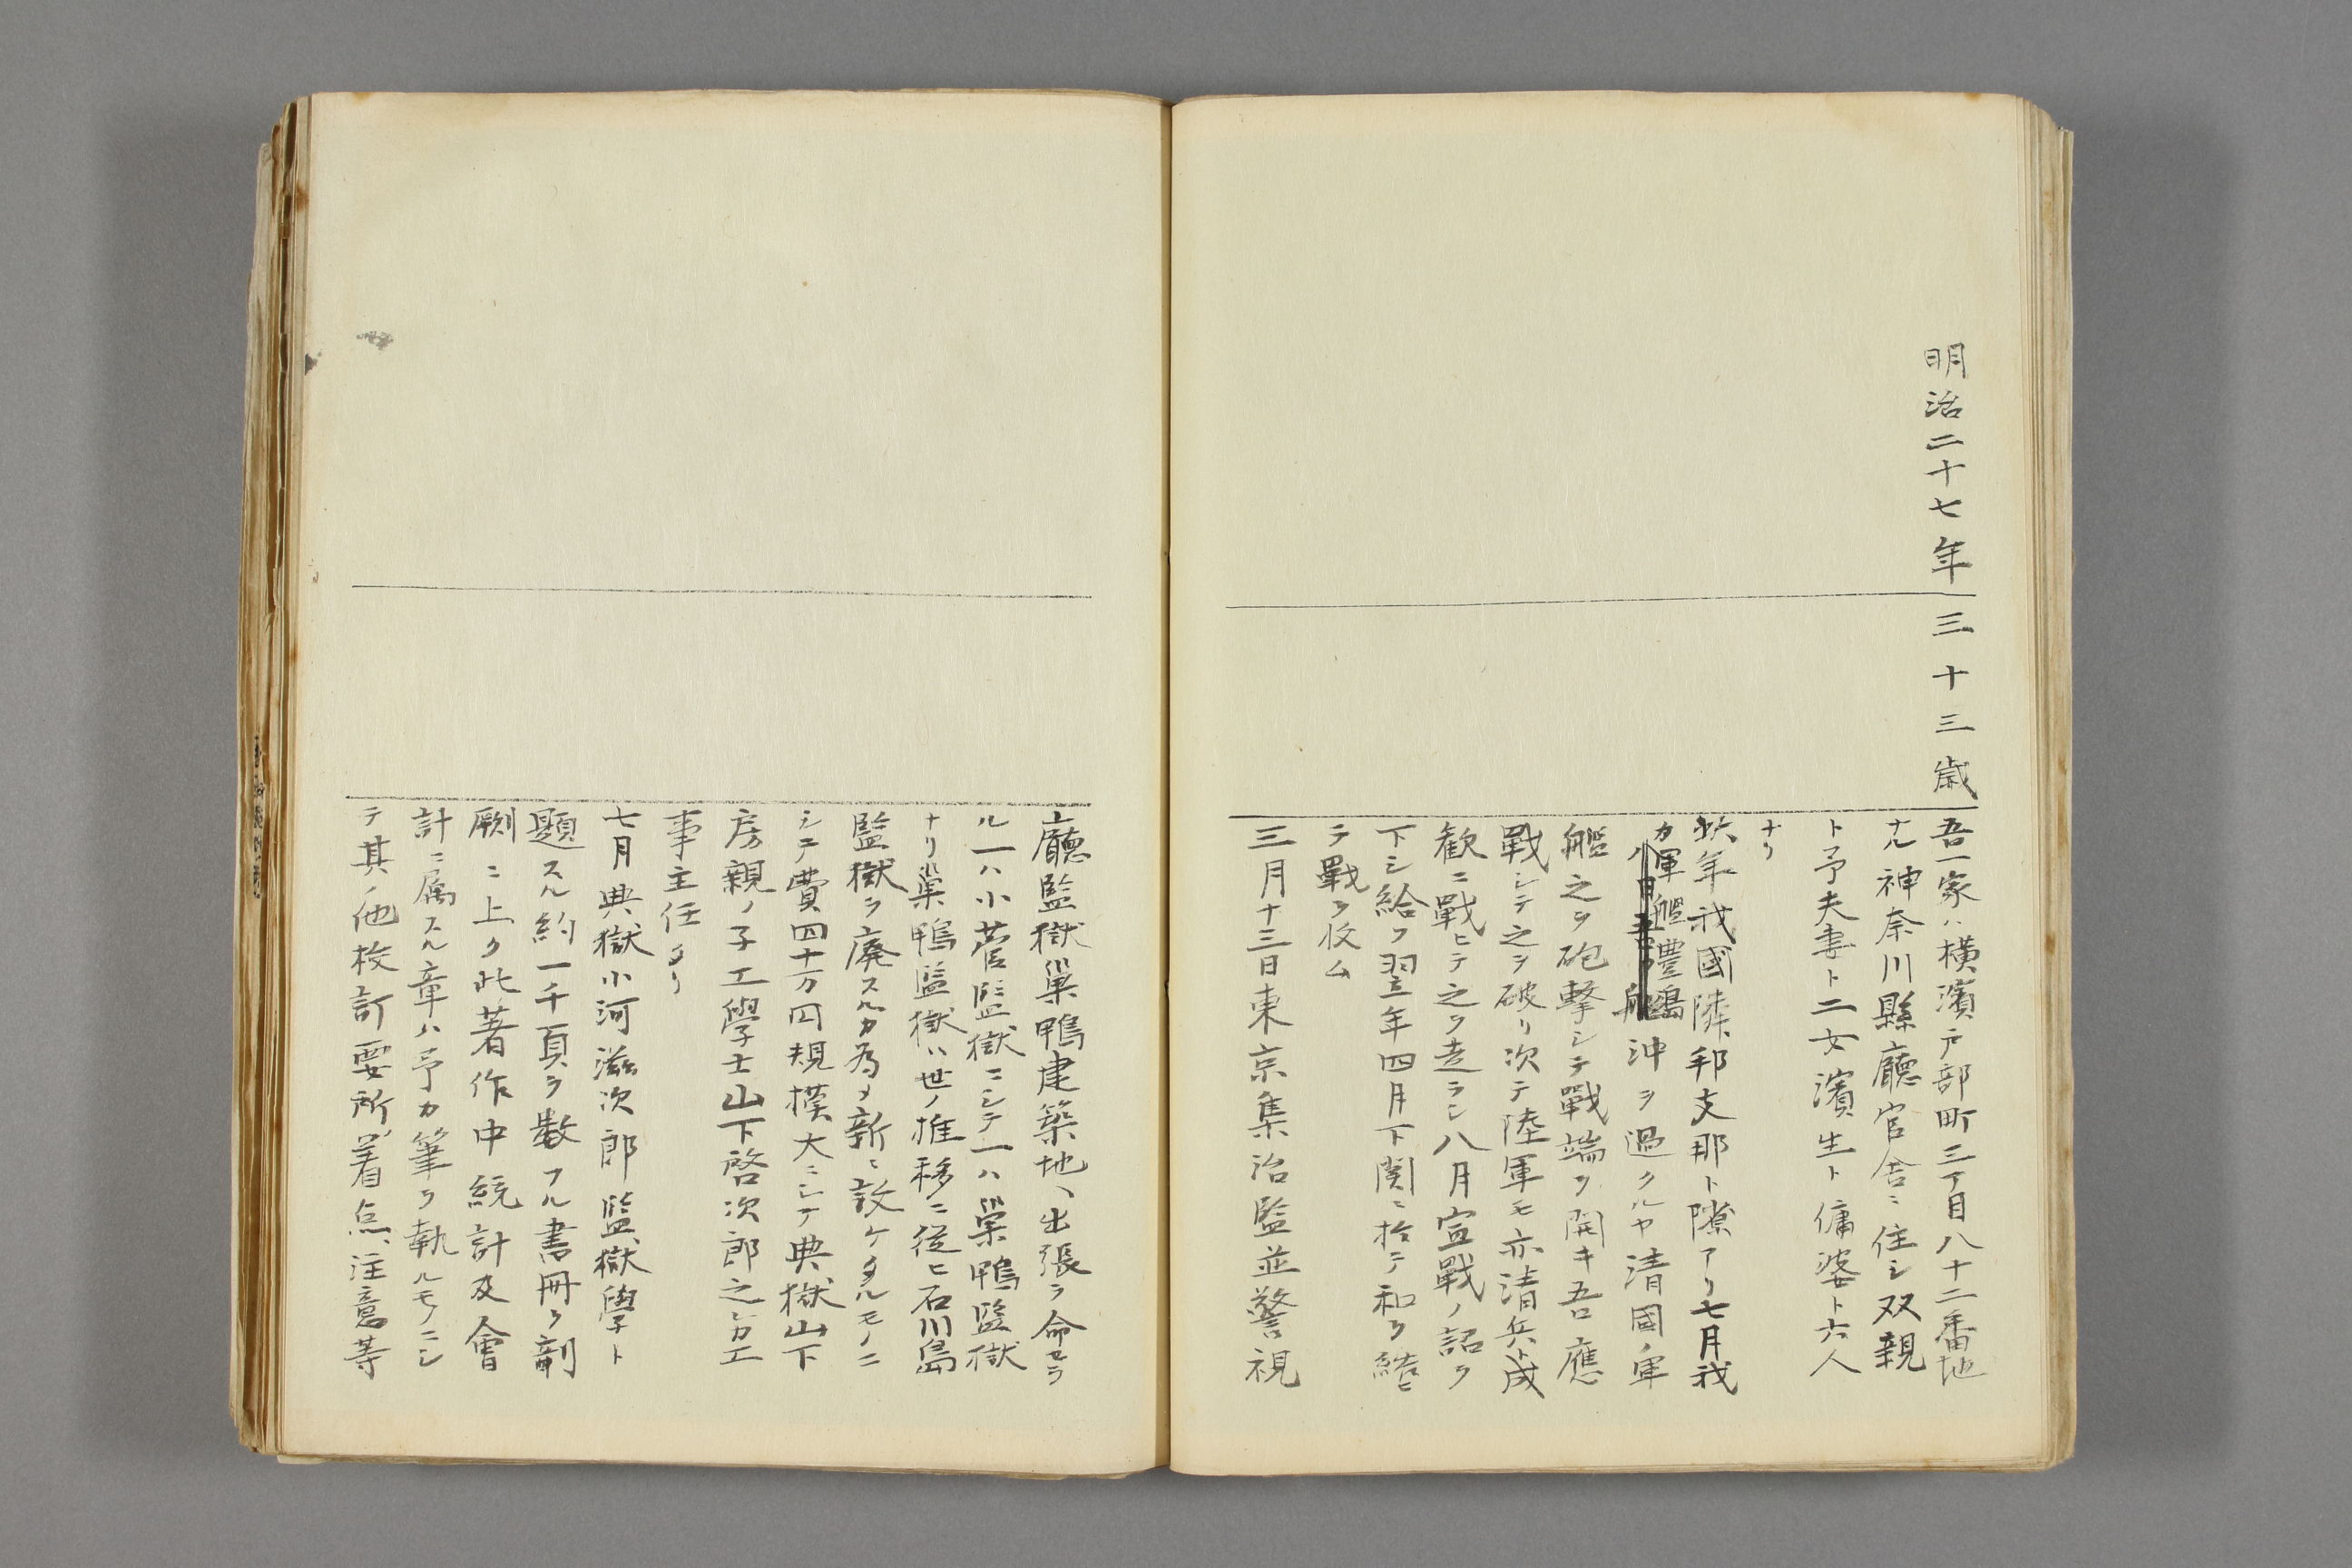 明治二十七年
三十三歳
吾一家ハ横濱戸部町三丁目八十二番地
ナル神奈川縣廳官舎ニ住シ双親
ト予夫妻ト二女濱生ト傭婆ト六人
ナリ
此年我國隣邦支那ト隙アリ七月我
カ軍艦豊嶋沖ヲ過クルヤ清國ノ軍
艦之ヲ砲撃シテ戰端ヲ開キ吾應
戰シテ之ヲ破リ次テ陸軍モ亦清兵ト成
歓ニ戰ヒテ之ヲ走ラシ八月宣戰ノ詔ヲ
下シ給フ翌年四月下関ニ於テ和ヲ結ヒ
テ戰ヲ收ム
三月十三日東京集治監並警視
廳監獄巣鴨建築地ヘ出張ヲ命セラ
ル一ハ小菅監獄ニシテ一ハ巣鴨監獄
ナリ巣鴨監獄ハ世ノ推移ニ從ヒ石川島
監獄ヲ廃スルカ為メ新ニ設ケタルモノニ
シテ費四十万円規模大ニシテ典獄山下
房親ノ子工學士山下啓次郎之レカ工
事主任タリ
七月典獄小河滋次郎監獄學ト
題スル約一千頁ヲ數フル書冊ヲ剞
劂ニ上ク此著作中統計及會
計ニ属スル章ハ予カ筆ヲ執ルモノニシ
テ其他校訂要所、着点、注意等